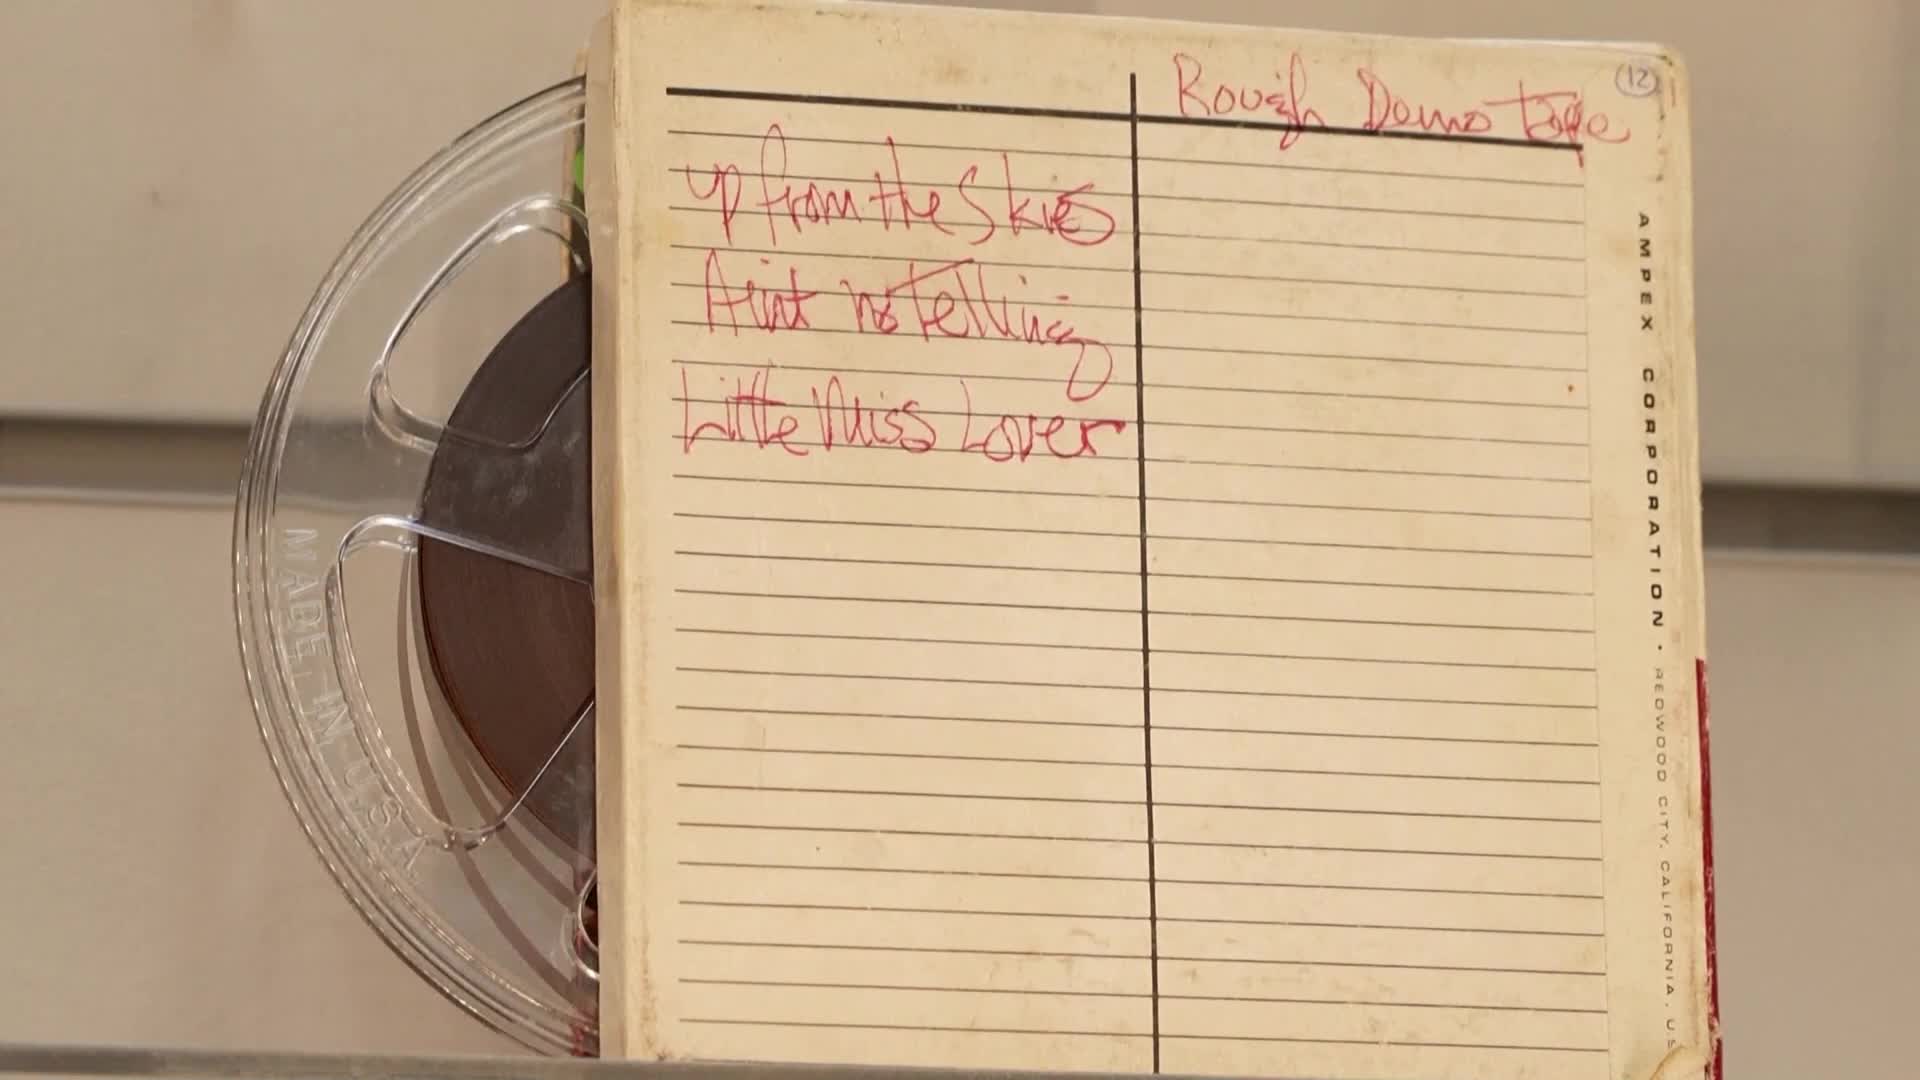 Rough Demo Tape
12
up from the Skies
Aint no Telling
Little Miss Lover
AMPEX CORPORATION · REDWOOD CITY, CALIFORNIA, U.S
MADE IN U.S.A.